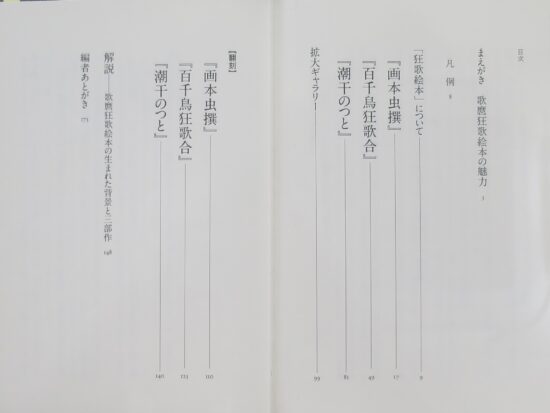 目次
まえがき 歌麿狂歌絵本の魅力 3
凡例 8
「狂歌絵本」について 9
『画本虫撰』 17
『百千鳥狂歌合』 49
『潮干のつと』 81
拡大ギャラリー 99
【翻刻】
『画本虫撰』 110
『百千鳥狂歌合』 124
『潮干のつと』 140
解説――歌麿狂歌絵本の生まれた背景と三部作 148
編者あとがき 173